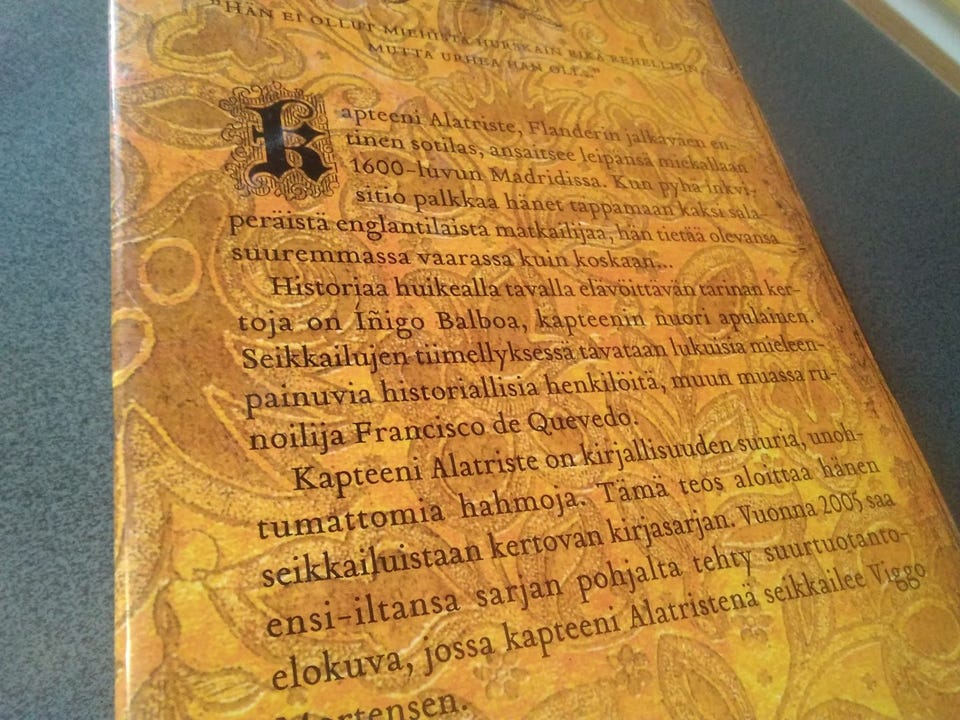 "HÄN EI OLLUT MIEHISTÄ HURSKAIN EIKÄ REHELLISIN
MUTTA URHEA HÄN OLI..."
Kapteeni Alatriste, Flanderin jalkaväen en-
tinen sotilas, ansaitsee leipänsä miekallaan
1600-luvun Madridissa. Kun pyhä inkvi-
sitio palkkaa hänet tappamaan kaksi sala-
peräistä englantilaista matkailijaa, hän tietää olevansa
suuremmassa vaarassa kuin koskaan...
Historiaa huikealla tavalla elävöittävän tarinan ker-
toja on Íñigo Balboa, kapteenin nuori apulainen.
Seikkailujen tiimellyksessä tavataan lukuisia mieleen-
painuvia historiallisia henkilöitä, muun muassa ru-
noilija Francisco de Quevedo.
Kapteeni Alatriste on kirjallisuuden suuria, unoh-
tumattomia hahmoja. Tämä teos aloittaa hänen
seikkailuistaan kertovan kirjasarjan. Vuonna 2005 saa
ensi-iltansa sarjan pohjalta tehty suurtuotanto-
elokuva, jossa kapteeni Alatristenä seikkailee Viggo
Mortensen.